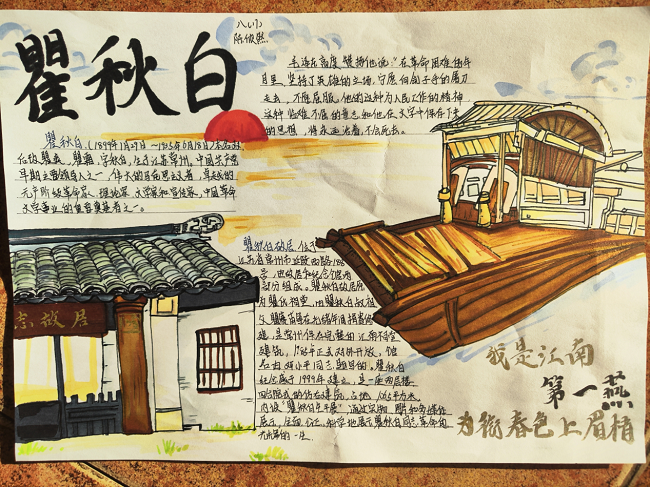 瞿秋白
八(1)
陈俊然
毛泽东高度赞扬他说:"在革命困难的年
月里,坚持了英雄的立场,宁愿向刽子手的屠刀
走去,不愿屈服。他的这种为人民工作的精神,
这种临难不屈的意志和他在文字中保存下来
的思想,将永远活着,不会死去。
瞿秋白(1899年1月29日~1935年6月18日)本名双
后改瞿爽、瞿霜,字秋白,生于江苏常州。中国共产党
早期主要领导人之一,伟大的马克思主义者,卓越的
无产阶级革命家、理论家、文学家和宣传家,中国革命
文学事业的重要奠基者之一。
瞿秋白故居 位于
江苏省常州市延陵西路188
号,由故居和纪念馆两
部分组成。瞿秋白故居原
为瞿氏宗祠,由瞿秋白叔祖
父瞿赓甫
建,是常州保存完整的江南祠堂
建筑,1985年正式对外开放,馆
名由邓小平同志题写的。瞿秋白
纪念馆于1999年建立,是一座两层楼
四合院式的仿古建筑,占地
内设"瞿秋白生平展"通过实物、照片和多媒体
展示,全面、公正、科学地展示瞿秋白同志革命的
光辉的一生。
志故居
我是江南
第一燕
为衔春色上眉梢